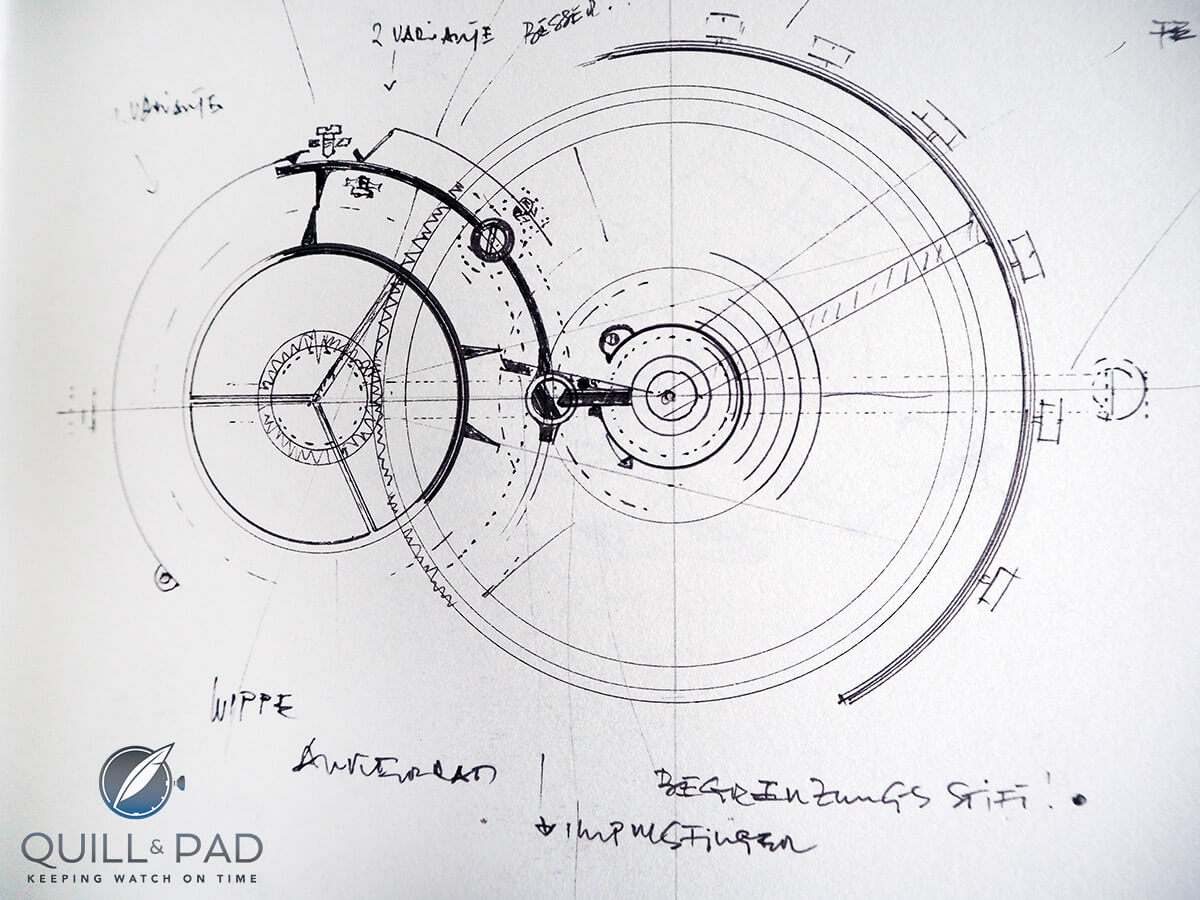 2 VARIANTE BESSER.
VARIANTE
WIPPE
ANKERRAD
BEGRENZUNGS STIFT!
IMPULSFINGER
QUILL & PAD
KEEPING WATCH ON TIME